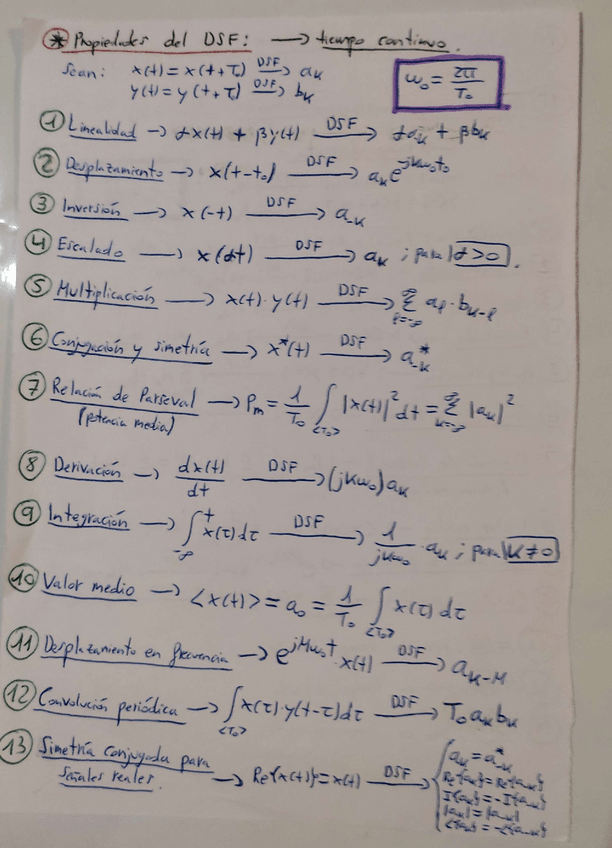 * Propiedades del DSF: → tiempo continuo.
Sean: x(t) = x(t+τ) DSF→ aₖ
y(t) = y(t+τ) DSF→ bₖ
ω₀ = 2π/T₀
① Linealidad → αx(t) + βy(t) DSF→ αaₖ + βbₖ
② Desplazamiento → x(t-t₀) DSF→ aₖe^jkω₀t₀
③ Inversión → x(-t) DSF→ a₋ₖ
④ Escalado → x(αt) DSF→ aₖ ; para α>0.
⑤ Multiplicación → x(t)·y(t) DSF→ ∑_{l=-∞}^{∞} aₗ·bₖ₋ₗ
⑥ Conjugación y simetría → x*(t) DSF→ a*₋ₖ
⑦ Relación de Parseval → Pm = 1/T₀ ∫_{<T₀>} |x(t)|² dt = ∑_{k=-∞}^{∞} |aₖ|²
(potencia media)
⑧ Derivación → dx(t)/dt DSF→ (jkω₀)aₖ
⑨ Integración → ∫_{-∞}^{t} x(τ)dτ DSF→ 1/jkω₀ · aₖ ; para k≠0
⑩ Valor medio → <x(t)> = a₀ = 1/T₀ ∫_{<T₀>} x(τ)dτ
⑪ Desplazamiento en frecuencia → e^{jMω₀t}·x(t) DSF→ a_{k-M}
⑫ Convolución periódica → ∫_{<T₀>} x(τ)·y(t-τ)dτ DSF→ T₀aₖbₖ
⑬ Simetría conjugada para
señales reales. → Re{x(t)}=x(t) DSF→
aₖ = a*₋ₖ
Re{aₖ}=Re{a₋ₖ}
I{aₖ}=-I{a₋ₖ}
|aₖ|=|a₋ₖ|
∠{aₖ}=-∠{a₋ₖ}